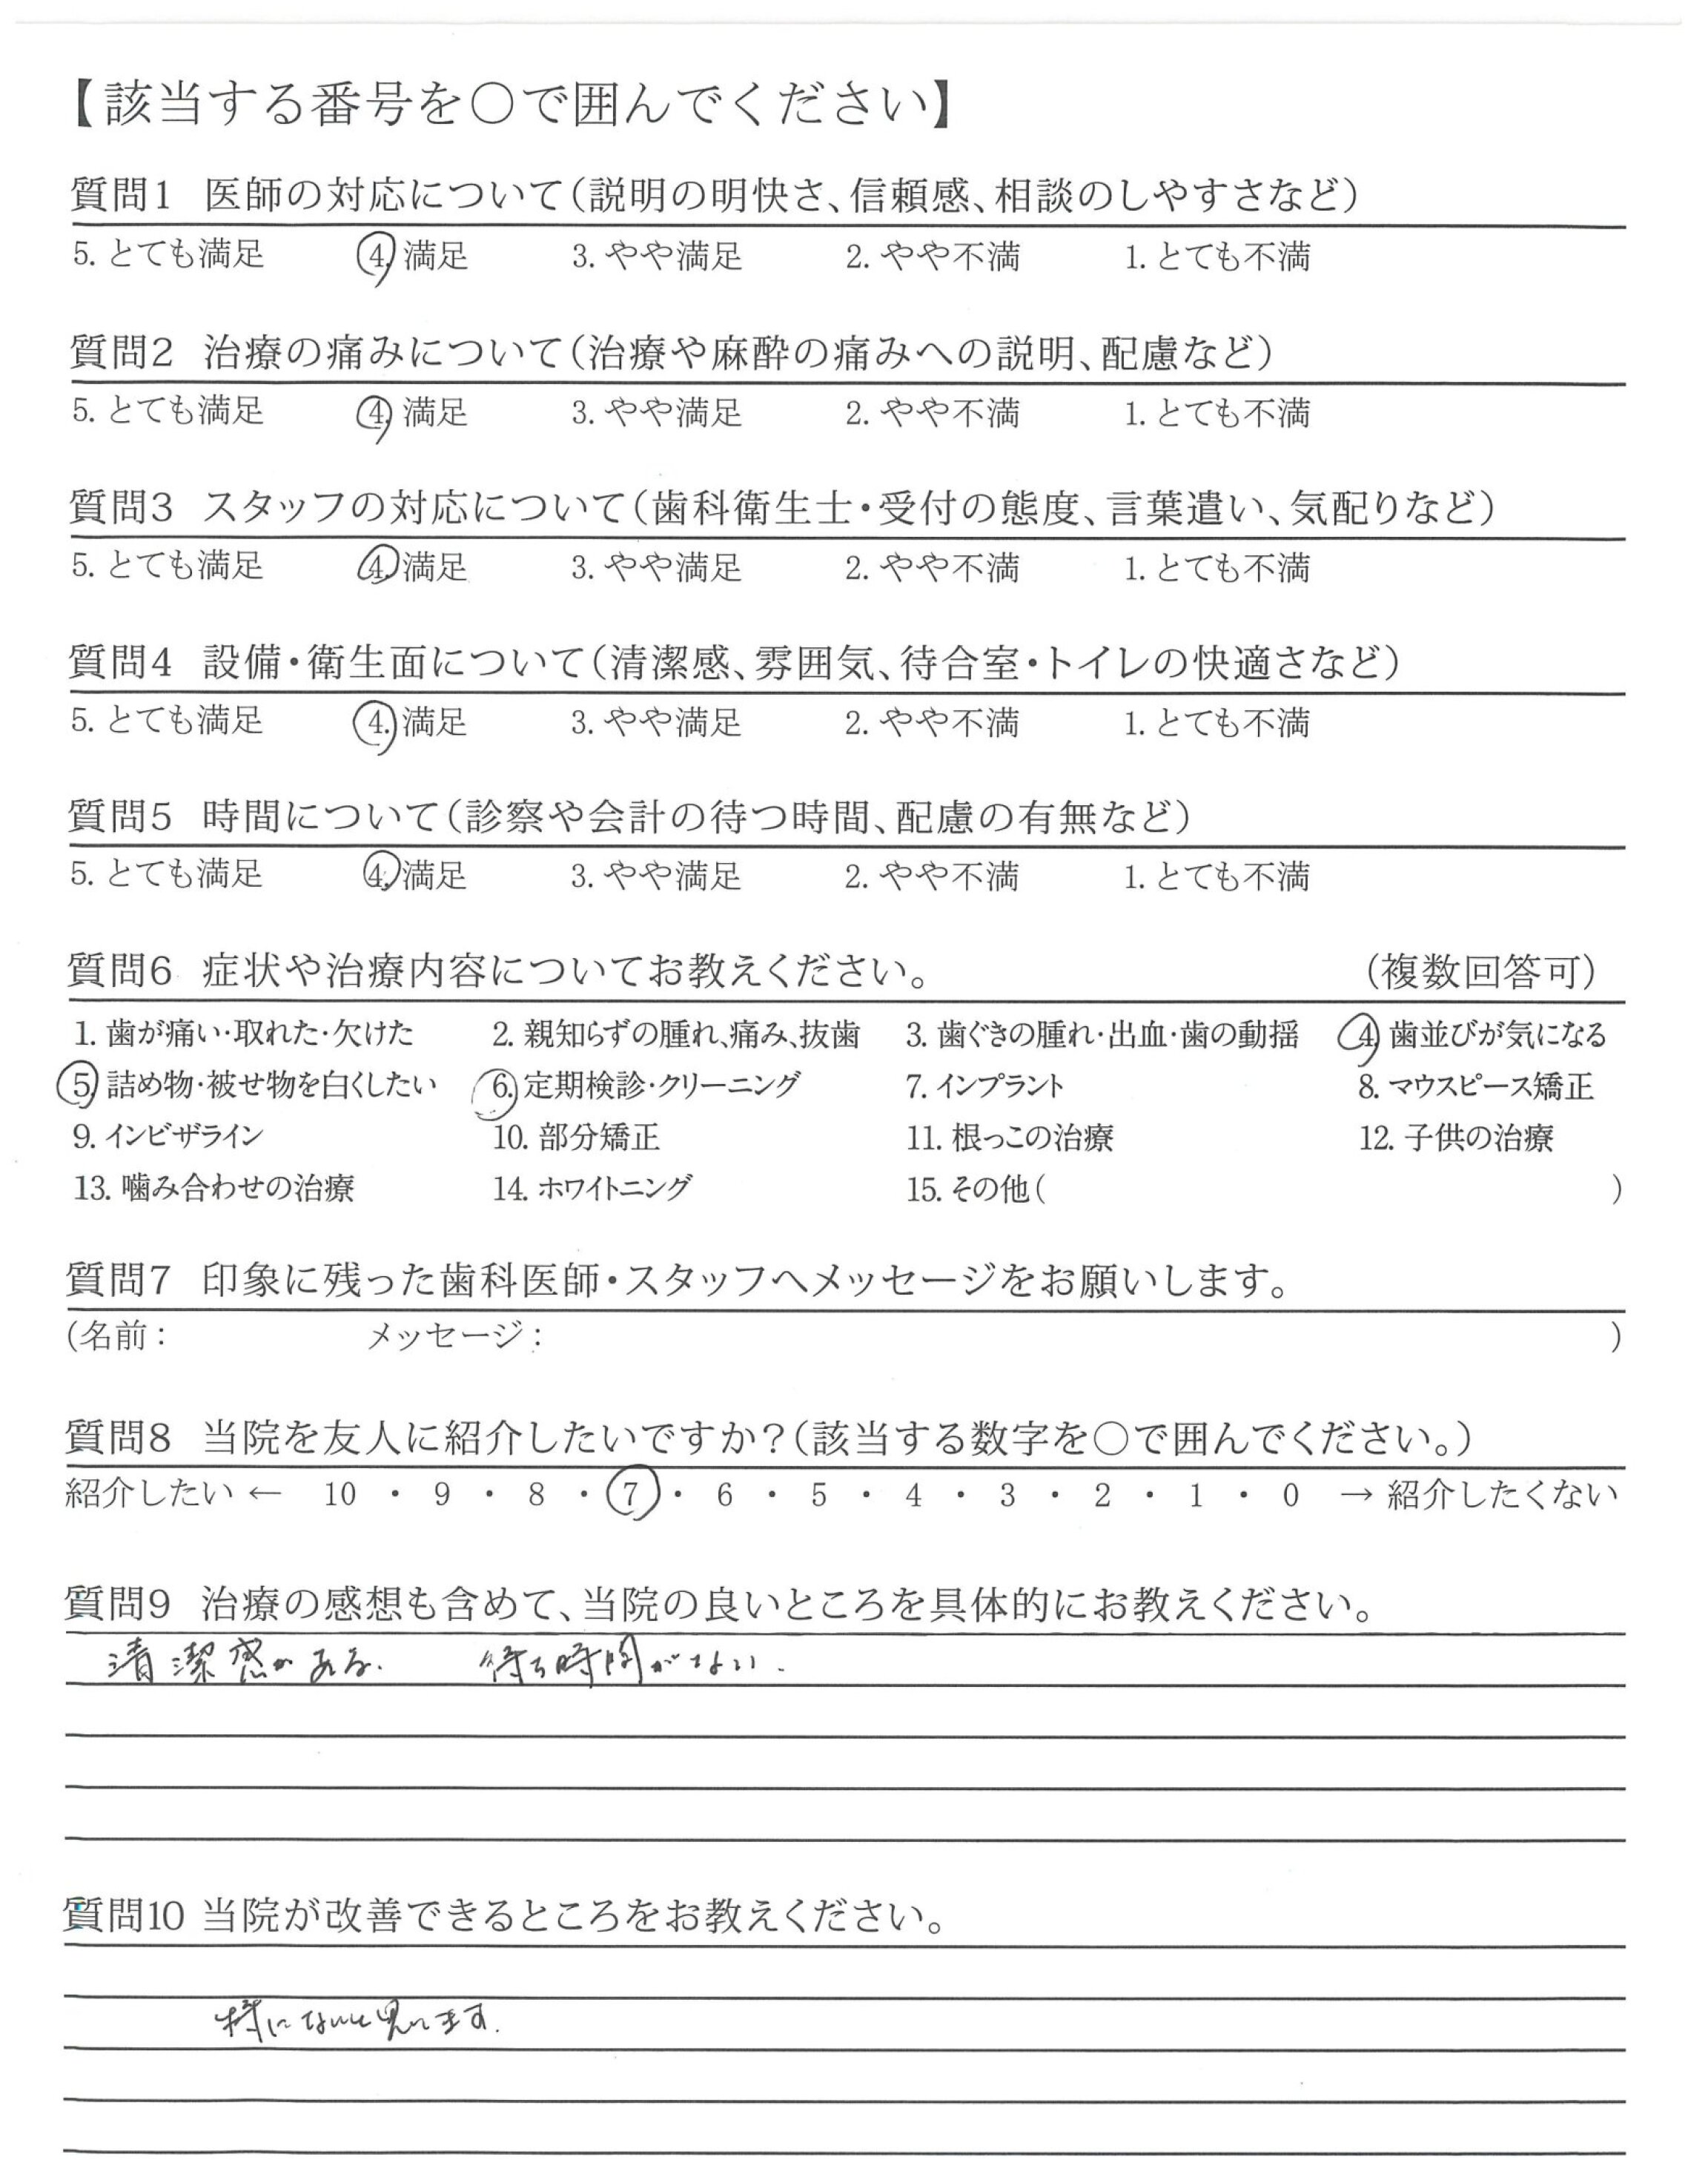 【該当する番号を○で囲んでください】
質問1 医師の対応について（説明の明快さ、信頼感、相談のしやすさなど）
5. とても満足 4. 満足 3. やや満足 2. やや不満 1. とても不満
質問2 治療の痛みについて（治療や麻酔の痛みへの説明、配慮など）
5. とても満足 4. 満足 3. やや満足 2. やや不満 1. とても不満
質問3 スタッフの対応について（歯科衛生士・受付の態度、言葉遣い、気配りなど）
5. とても満足 4. 満足 3. やや満足 2. やや不満 1. とても不満
質問4 設備・衛生面について（清潔感、雰囲気、待合室・トイレの快適さなど）
5. とても満足 4. 満足 3. やや満足 2. やや不満 1. とても不満
質問5 時間について（診察や会計の待つ時間、配慮の有無など）
5. とても満足 4. 満足 3. やや満足 2. やや不満 1. とても不満
質問6 症状や治療内容についてお教えください。 （複数回答可）
1. 歯が痛い・取れた・欠けた 2. 親知らずの腫れ、痛み、抜歯 3. 歯ぐきの腫れ・出血・歯の動揺 4. 歯並びが気になる
5. 詰め物・被せ物を白くしたい 6. 定期検診・クリーニング 7. インプラント 8. マウスピース矯正
9. インビザライン 10. 部分矯正 11. 根っこの治療 12. 子供の治療
13. 噛み合わせの治療 14. ホワイトニング 15. その他（ ）
質問7 印象に残った歯科医師・スタッフへメッセージをお願いします。
（名前： メッセージ： ）
質問8 当院を友人に紹介したいですか？（該当する数字を○で囲んでください。）
紹介したい ← 10 ・ 9 ・ 8 ・ 7 ・ 6 ・ 5 ・ 4 ・ 3 ・ 2 ・ 1 ・ 0 → 紹介したくない
質問9 治療の感想も含めて、当院の良いところを具体的にお教えください。
清潔感がある. 待ち時間がない.
質問10 当院が改善できるところをお教えください。
特にないと思います.